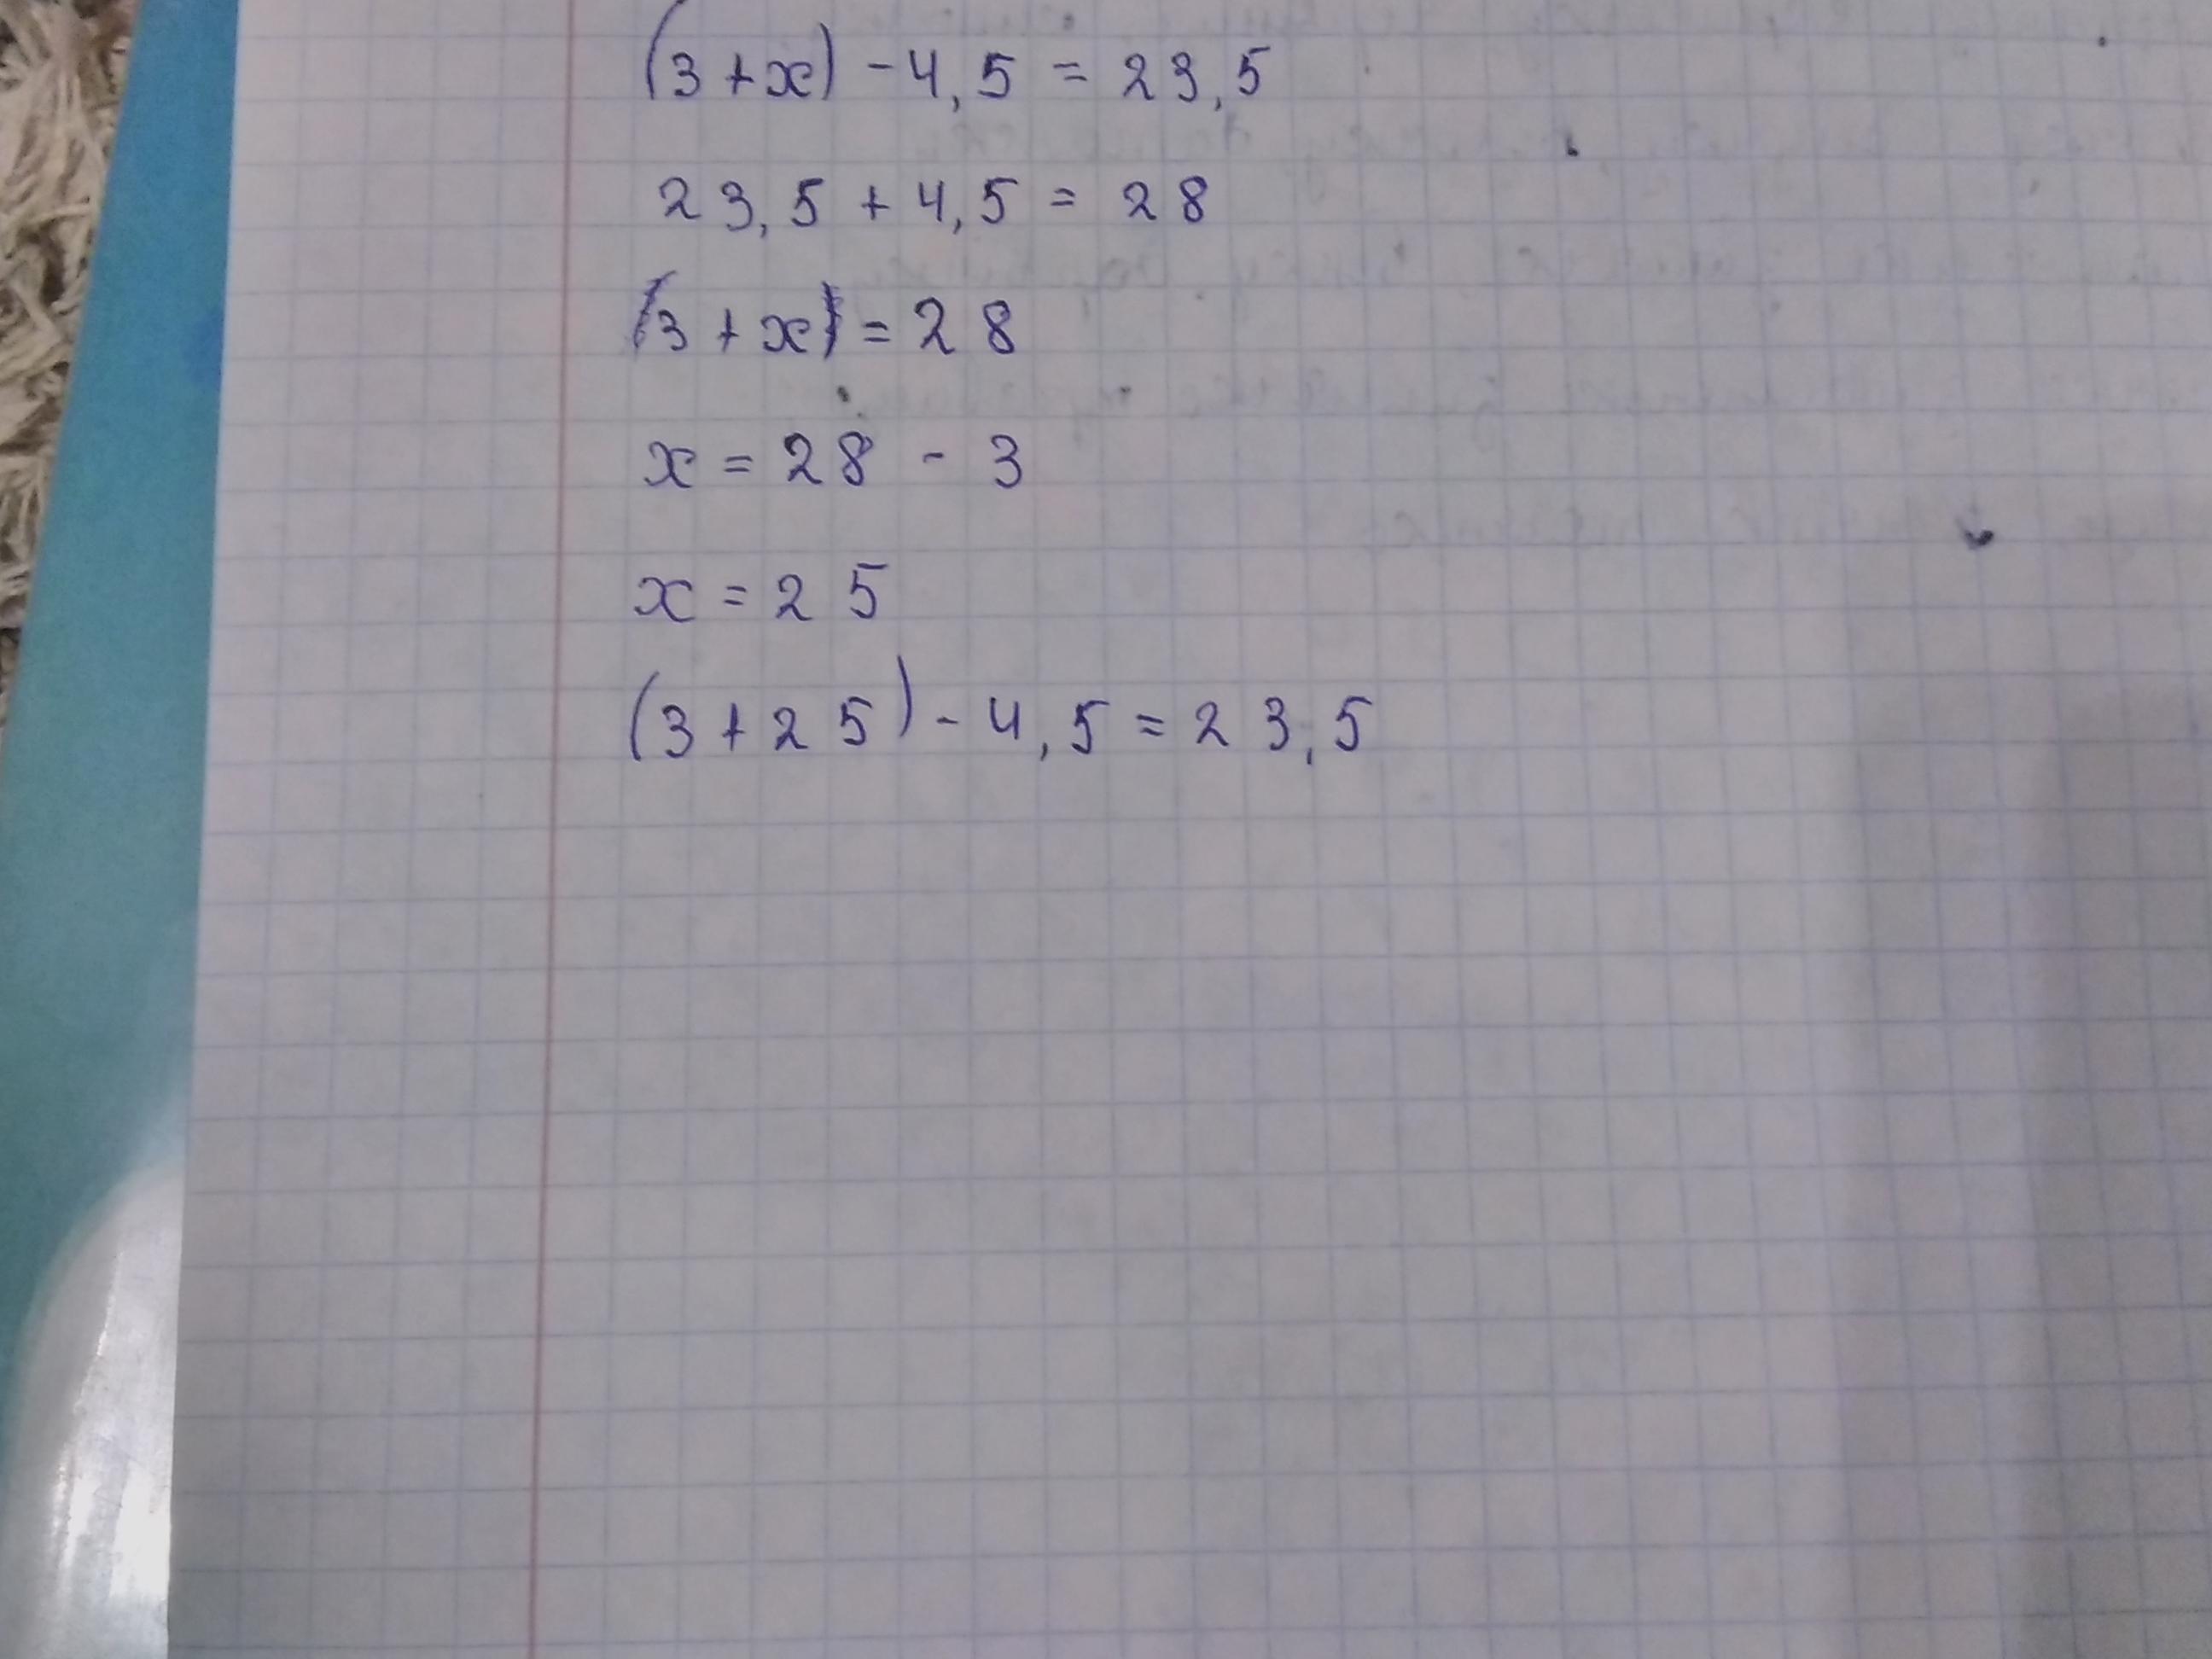 (3+x) - 4,5 = 23,5
23,5 + 4,5 = 28
(3 + x) = 28
x = 28 - 3
x = 25
(3+25) - 4,5 = 23,5